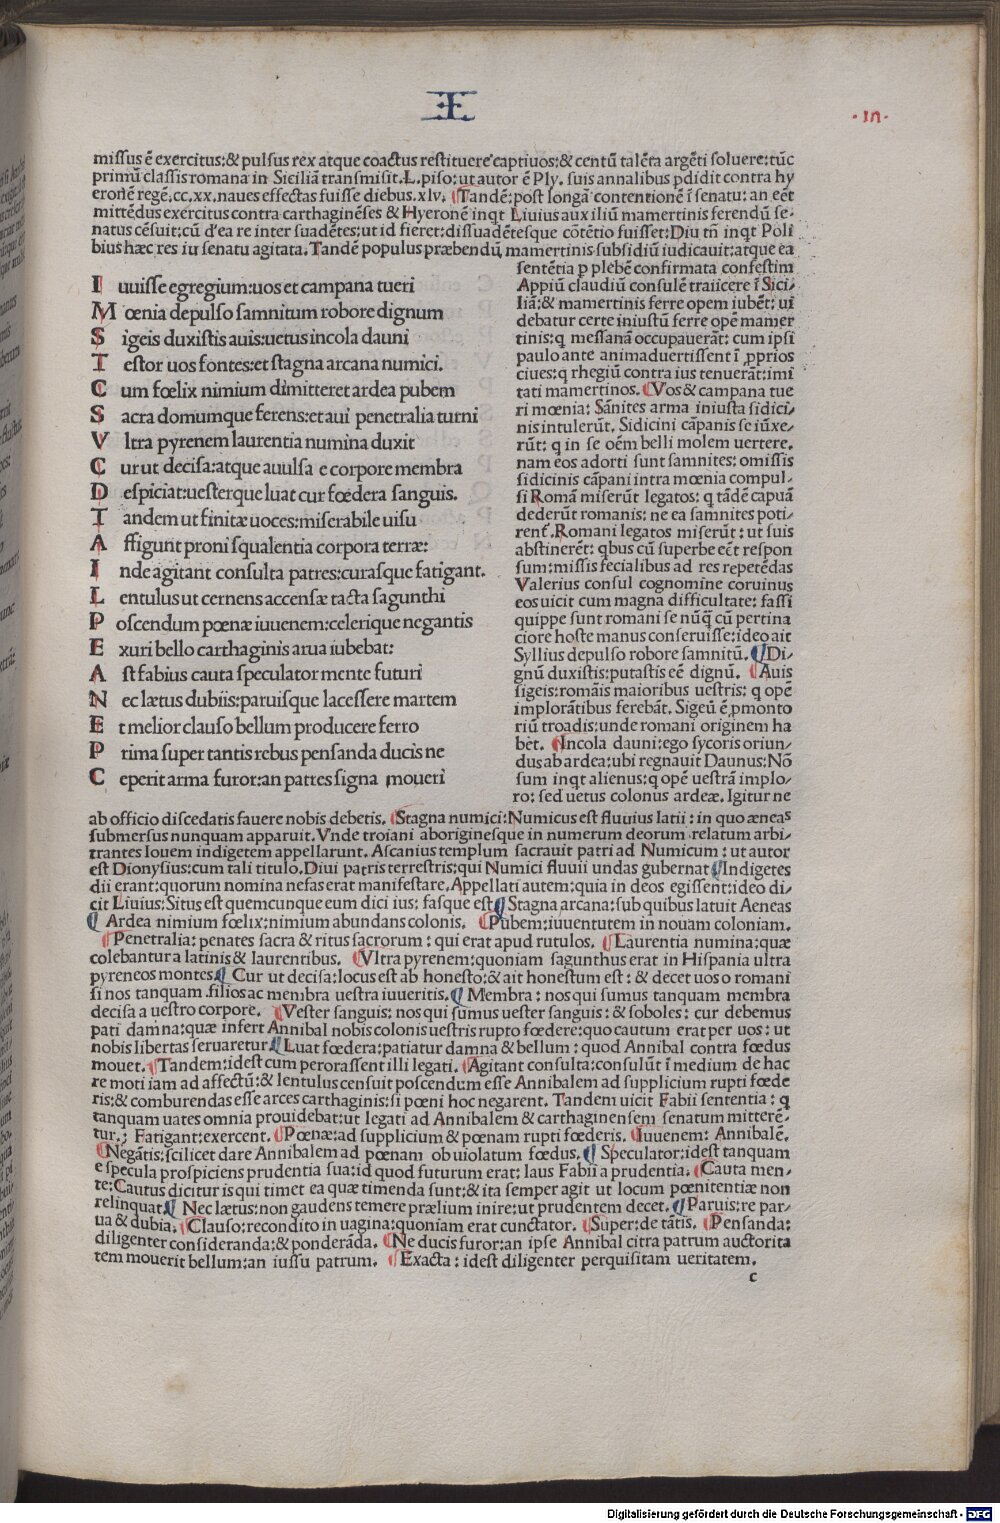 Ɪ
·ɪn·
missus ē exercitus:& pulsus rex atque coactus restituere captiuos:& centū talēta argēti soluere:tūc
primū classis romana in Siciliā transmisit.L.piso:ut autor ē Ply. suis annalibus pdidit contra hy
eronē regē.cc.xx.naues effectas fuisse diebus.xlv. ¶Tandē:post longā contentionē ī senatu:an eēt
mittēdus exercitus contra carthaginēses & Hyeronē inqt Liuius auxiliū mamertinis ferendū se-
natus cēsuit:cū d'ea re inter suadētes:ut id fieret:dissuadētesque cōtētio fuisset:Diu tñ inqt Poli
bius hæc res iu senatu agitata. Tandē populus præbendū mamertinis subsidiū iudicauit:atque ea
I uuisse egregium:uos et campana tueri
M œnia depulso samnitum robore dignum
S igeis duxistis auis:uetus incola dauni
T estor uos fontes:et stagna arcana numici.
C um fœlix nimium dimitteret ardea pubem
S acra domumque ferens:et aui penetralia turni
V ltra pyrenem laurentia numina duxit
C ur ut decisa:atque auulsa e corpore membra
D espiciat:uesterque luat cur fœdera sanguis.
T andem ut finitæ uoces:miserabile uisu
A ffigunt proni squalentia corpora terræ:
I nde agitant consulta patres:curasque fatigant.
L entulus ut cernens accensæ tacta sagunthi
P oscendum pœnæ iuuenem:celerique negantis
E xuri bello carthaginis arua iubebat:
A st fabius cauta speculator mente futuri
N ec lætus dubiis:paruisque lacessere martem
E t melior clauso bellum producere ferro
P rima super tantis rebus pensanda ducis ne
C eperit arma furor:an patres signa moueri
sentētia p plebē confirmata confestim
Appiū claudiū consulē traiicere ī Sici/
liā:& mamertinis ferre opem iubēt: ui
debatur certe iniustū ferre opē mamer
tinis:q messanā occupauerāt: cum ipsi
paulo ante animaduertissent ī pprios
ciues:q rhegiū contra ius tenuerāt:imi
tati mamertinos. ¶Vos & campana tue
ri mœnia: Sānites arma iniusta sidici/
nis intulerūt. Sidicini cāpanis se iūxe/
rūt: q in se oēm belli molem uertere.
nam eos adorti sunt samnites: omissis
sidicinis cāpani intra mœnia compul/
si Romā miserūt legatos: q tādē capuā
dederūt romanis: ne ea samnites poti/
rent. Romani legatos miserūt: ut suis
abstinerēt: qbus cū superbe eēt respon
sum:missis fecialibus ad res repetēdas
Valerius consul cognomine coruinus
eos uicit cum magna difficultate: fassi
quippe sunt romani se nūq cū pertina
ciore hoste manus conseruisse:ideo ait
Syllius depulso robore samnitū. ¶Di/
gnū duxistis:putastis eē dignū. ¶Auis
sigeis:romāis maioribus uestris: q opē
implorātibus ferebāt. Sigeū ē pmonto
riū troadis:unde romani originem ha
bēt. ¶Incola dauni:ego sycoris oriun/
dus ab ardea:ubi regnauit Daunus:Nō
sum inqt alienus:q opē uestrā implo/
ro: sed uetus colonus ardeæ. Igitur ne
ab officio discedatis fauere nobis debetis. ¶Stagna numici:Numicus est fluuius latii: in quo æneas
submersus nunquam apparuit. Vnde troiani aboriginesque in numerum deorum relatum arbi/
trantes Iouem indigetem appellarunt. Ascanius templum sacrauit patri ad Numicum: ut autor
est Dionysius:cum tali titulo.Diui patris terrestris:qui Numici fluuii undas gubernat ¶Indigetes
dii erant:quorum nomina nefas erat manifestare. Appellati autem:quia in deos egissent:ideo di/
cit Liuius:Situs est quemcunque eum dici ius: fasque est ¶Stagna arcana:sub quibus latuit Aeneas
¶ Ardea nimium fœlix:nimium abundans colonis. ¶Pubem:iuuentutem in nouam coloniam.
¶Penetralia: penates sacra & ritus sacrorum: qui erat apud rutulos. ¶Laurentia numina:quæ
colebantur a latinis & laurentibus. ¶Vltra pyrenem:quoniam sagunthus erat in Hispania ultra
pyreneos montes ¶ Cur ut decisa:locus est ab honesto:& ait honestum est: & decet uos o romani
si nos tanquam filios ac membra uestra iuueritis. ¶ Membra: nos qui sumus tanquam membra
decisa a uestro corpore. ¶Vester sanguis: nos qui sumus uester sanguis: & soboles: cur debemus
pati damna:quæ infert Annibal nobis colonis uestris rupto fœdere:quo cautum erat per uos: ut
nobis libertas seruaretur ¶Luat fœdera:patiatur damna & bellum: quod Annibal contra fœdus
mouet. ¶Tandem:idest cum perorassent illi legati. ¶Agitant consulta:consulūt ī medium de hac
re moti iam ad affectū:& lentulus censuit poscendum esse Annibalem ad supplicium rupti fœde
ris:& comburendas esse arces carthaginis:si pœni hoc negarent. Tandem uicit Fabii sententia: q
tanquam uates omnia prouidebat:ut legati ad Annibalem & carthaginensem senatum mitterē-
tur.; Fatigant:exercent. ¶Pœnæ:ad supplicium & pœnam rupti fœderis. ¶Iuuenem: Annibalē.
¶Negātis:scilicet dare Annibalem ad pœnam ob uiolatum fœdus. ¶ Speculator:idest tanquam
e specula prospiciens prudentia sua:id quod futurum erat: laus Fabii a prudentia. ¶Cauta men/
te:Cautus dicitur is qui timet ea quæ timenda sunt:& ita semper agit ut locum pœnitentiæ non
relinquat ¶ Nec lætus:non gaudens temere prælium inire:ut prudentem decet. ¶Paruis:re par/
ua & dubia. ¶Clauso:recondito in uagina:quoniam erat cunctator. ¶Super:de tātis. ¶Pensanda:
diligenter consideranda:& ponderāda. ¶Ne ducis furor:an ipse Annibal citra patrum auctorita
tem mouerit bellum:an iussu patrum. ¶Exacta: idest diligenter perquisitam ueritatem.
c
Digitalisierung gefördert durch die Deutsche Forschungsgemeinschaft - DFG